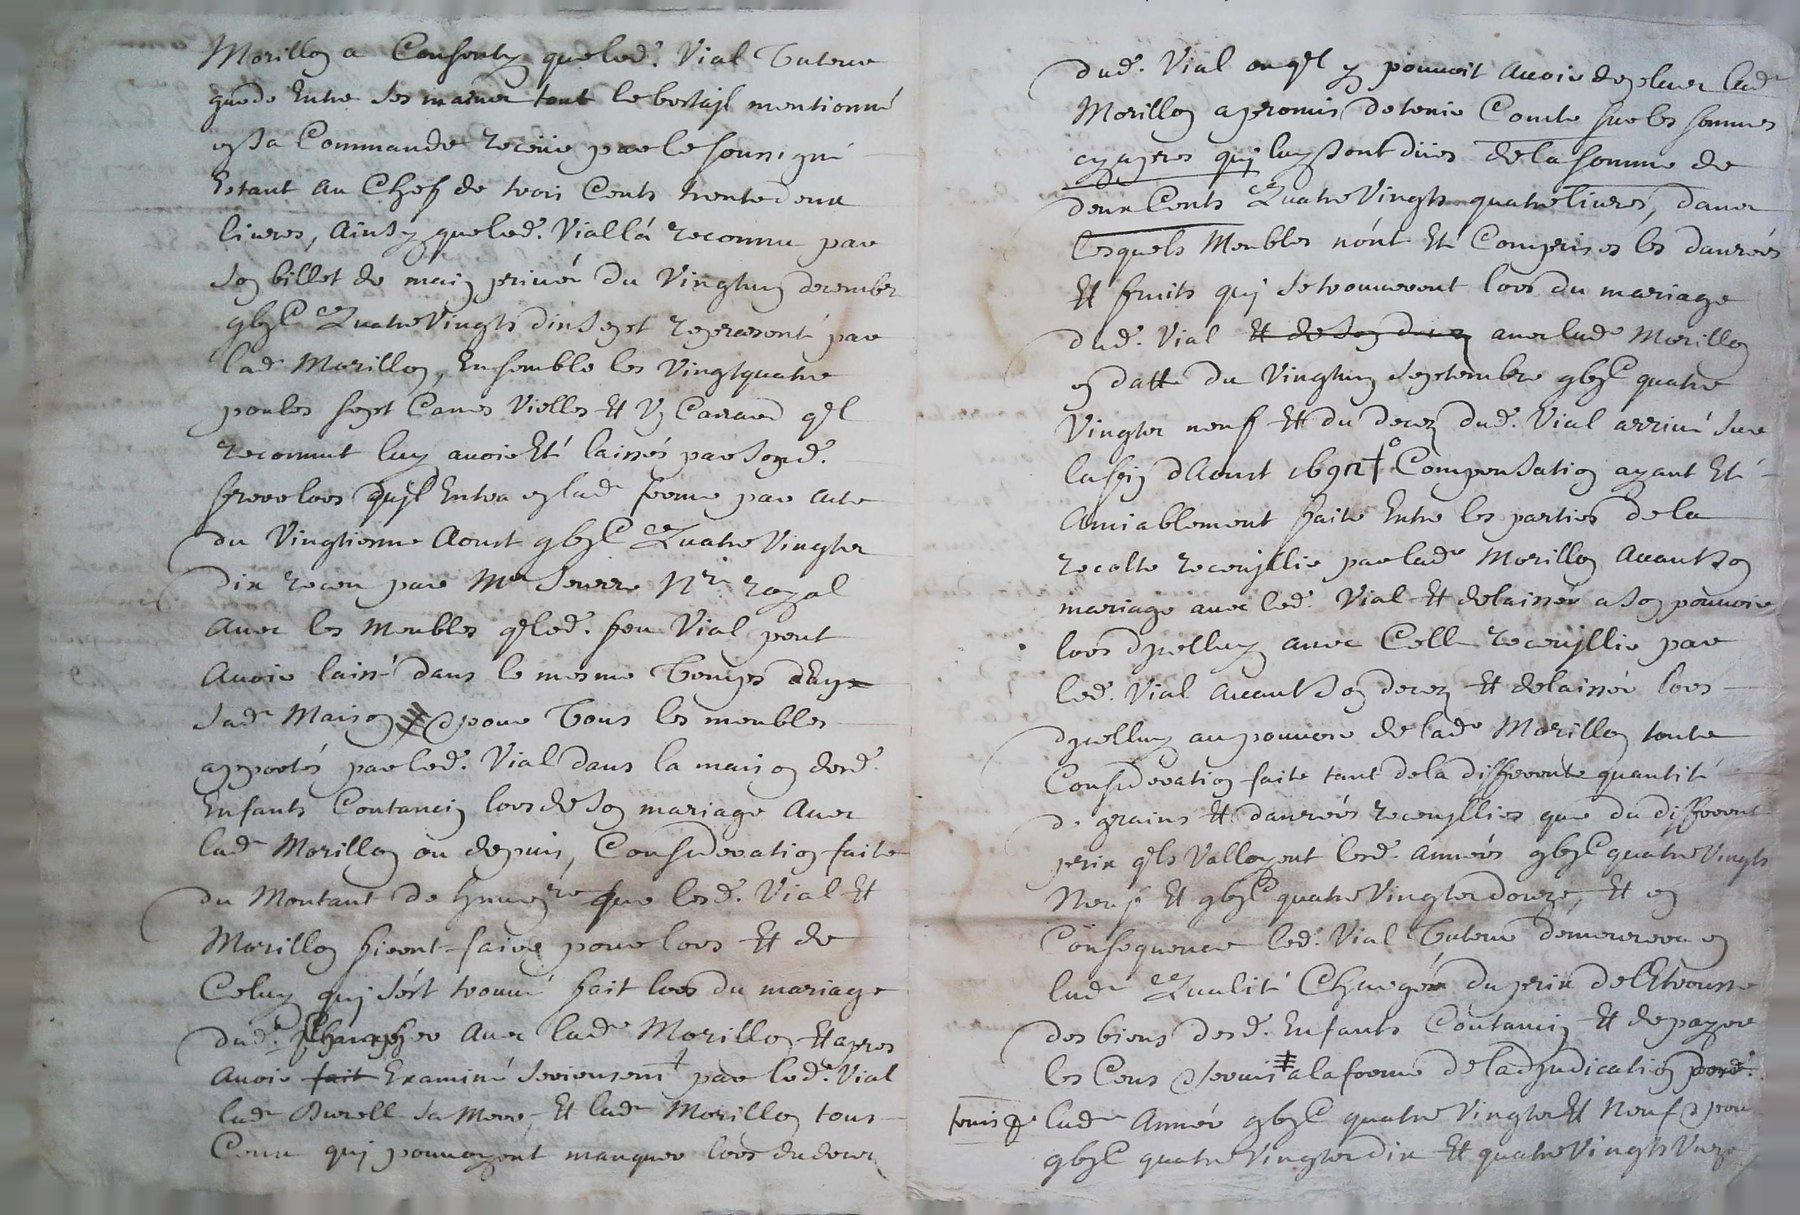 Morillon a Consenty que led. Vial Tuteur
garde Entre ses mains tout le bestajl mentionné
en sa Commande receüe par le soussigné
Estant au Chef de trois Cents trente deux
livres, Ainsy que led. Vial l'a reconnu par
son billet de main privée du Vingtun decembre
gbjC Quatre Vingts dix sept representé par
lade Morillon, Ensemble les Vingtquatre
poules sept Canes Vielles Et Un Canard ql
reconnut luy avoir Eté laissés par sond.
frere lors qujl Entra en lade ferme par acte
du Vingtiesme Aoust gbjC Quatre Vingts
dix receu par Me Seurre Nre royal
Avec les Meubles q led. feu Vial peut
Avoir laissé dans le mesme Temps
sade Maison & pour Tous les meubles
apportés par led. Vial dans la maison desd.
Enfants Contancin lors de son mariage Avec
lade Morillon ou depuis, Consideration faite
du Montant de Linvenre que lesd. Vial Et
Morillon firent faire pour lors Et de
Celuy quj s'est trouvé fait lors du mariage
dud. Avec lade Morillon Et apres
Avoir fait Examiné serieusemt par led. Vial
lade Burell sa Mere, Et lade Morillon tous
Ceux quj pouvoyent manquer lors du decez
dud. Vial ou ql y pouvoit Avoir de plus lade
Morillon a promis de tenir Compte sur les sommes
cy apres quj luy sont dües de la somme de
deux Cents Quatre Vingts quatre livres, dans
lesquels Meubles n'ont Eté Comprises les danrées
Et fruits quj se trouverent lors du mariage
dud. Vial Et de son decez avec lade Morillon
en datte du Vingtun septembre gbjC quatre
Vingts neuf Et du decez dud. Vial arrivé sur
la fin d'Aoust 1692 Compensation ayant Eté
Amiablement faite Entre les parties de la
recolte recoujllie par lade Morillon Avant son
mariage avec led. Vial Et delaissée a son pouvoir
lors dicelluy avec Celle recoujllie par
led. Vial Avant son decez Et delaissée lors
dicelluy au pouvoir de lade Morillon toute
Consideration faite tant de la differente quantité
de grains Et danrées recoujllies que du different
prix qls Valloyent lesd. Années gbjC quatre Vingts
Neuf Et gbjC quatre Vingts douze, Et en
Consequence led. Vial Tuteur demeurera en
lade Qualité Chargé du prix de l'Etrousse
des biens desd. Enfants Contancin Et de payer
les Cens & servis a la forme de l'adjudication
lade Année gbjC quatre Vingts Et Neuf & pour
gbjC quatre Vingts dix Et quatre Vingts Unze